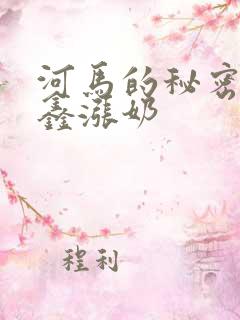 河马的秘密
鑫涨奶
程利